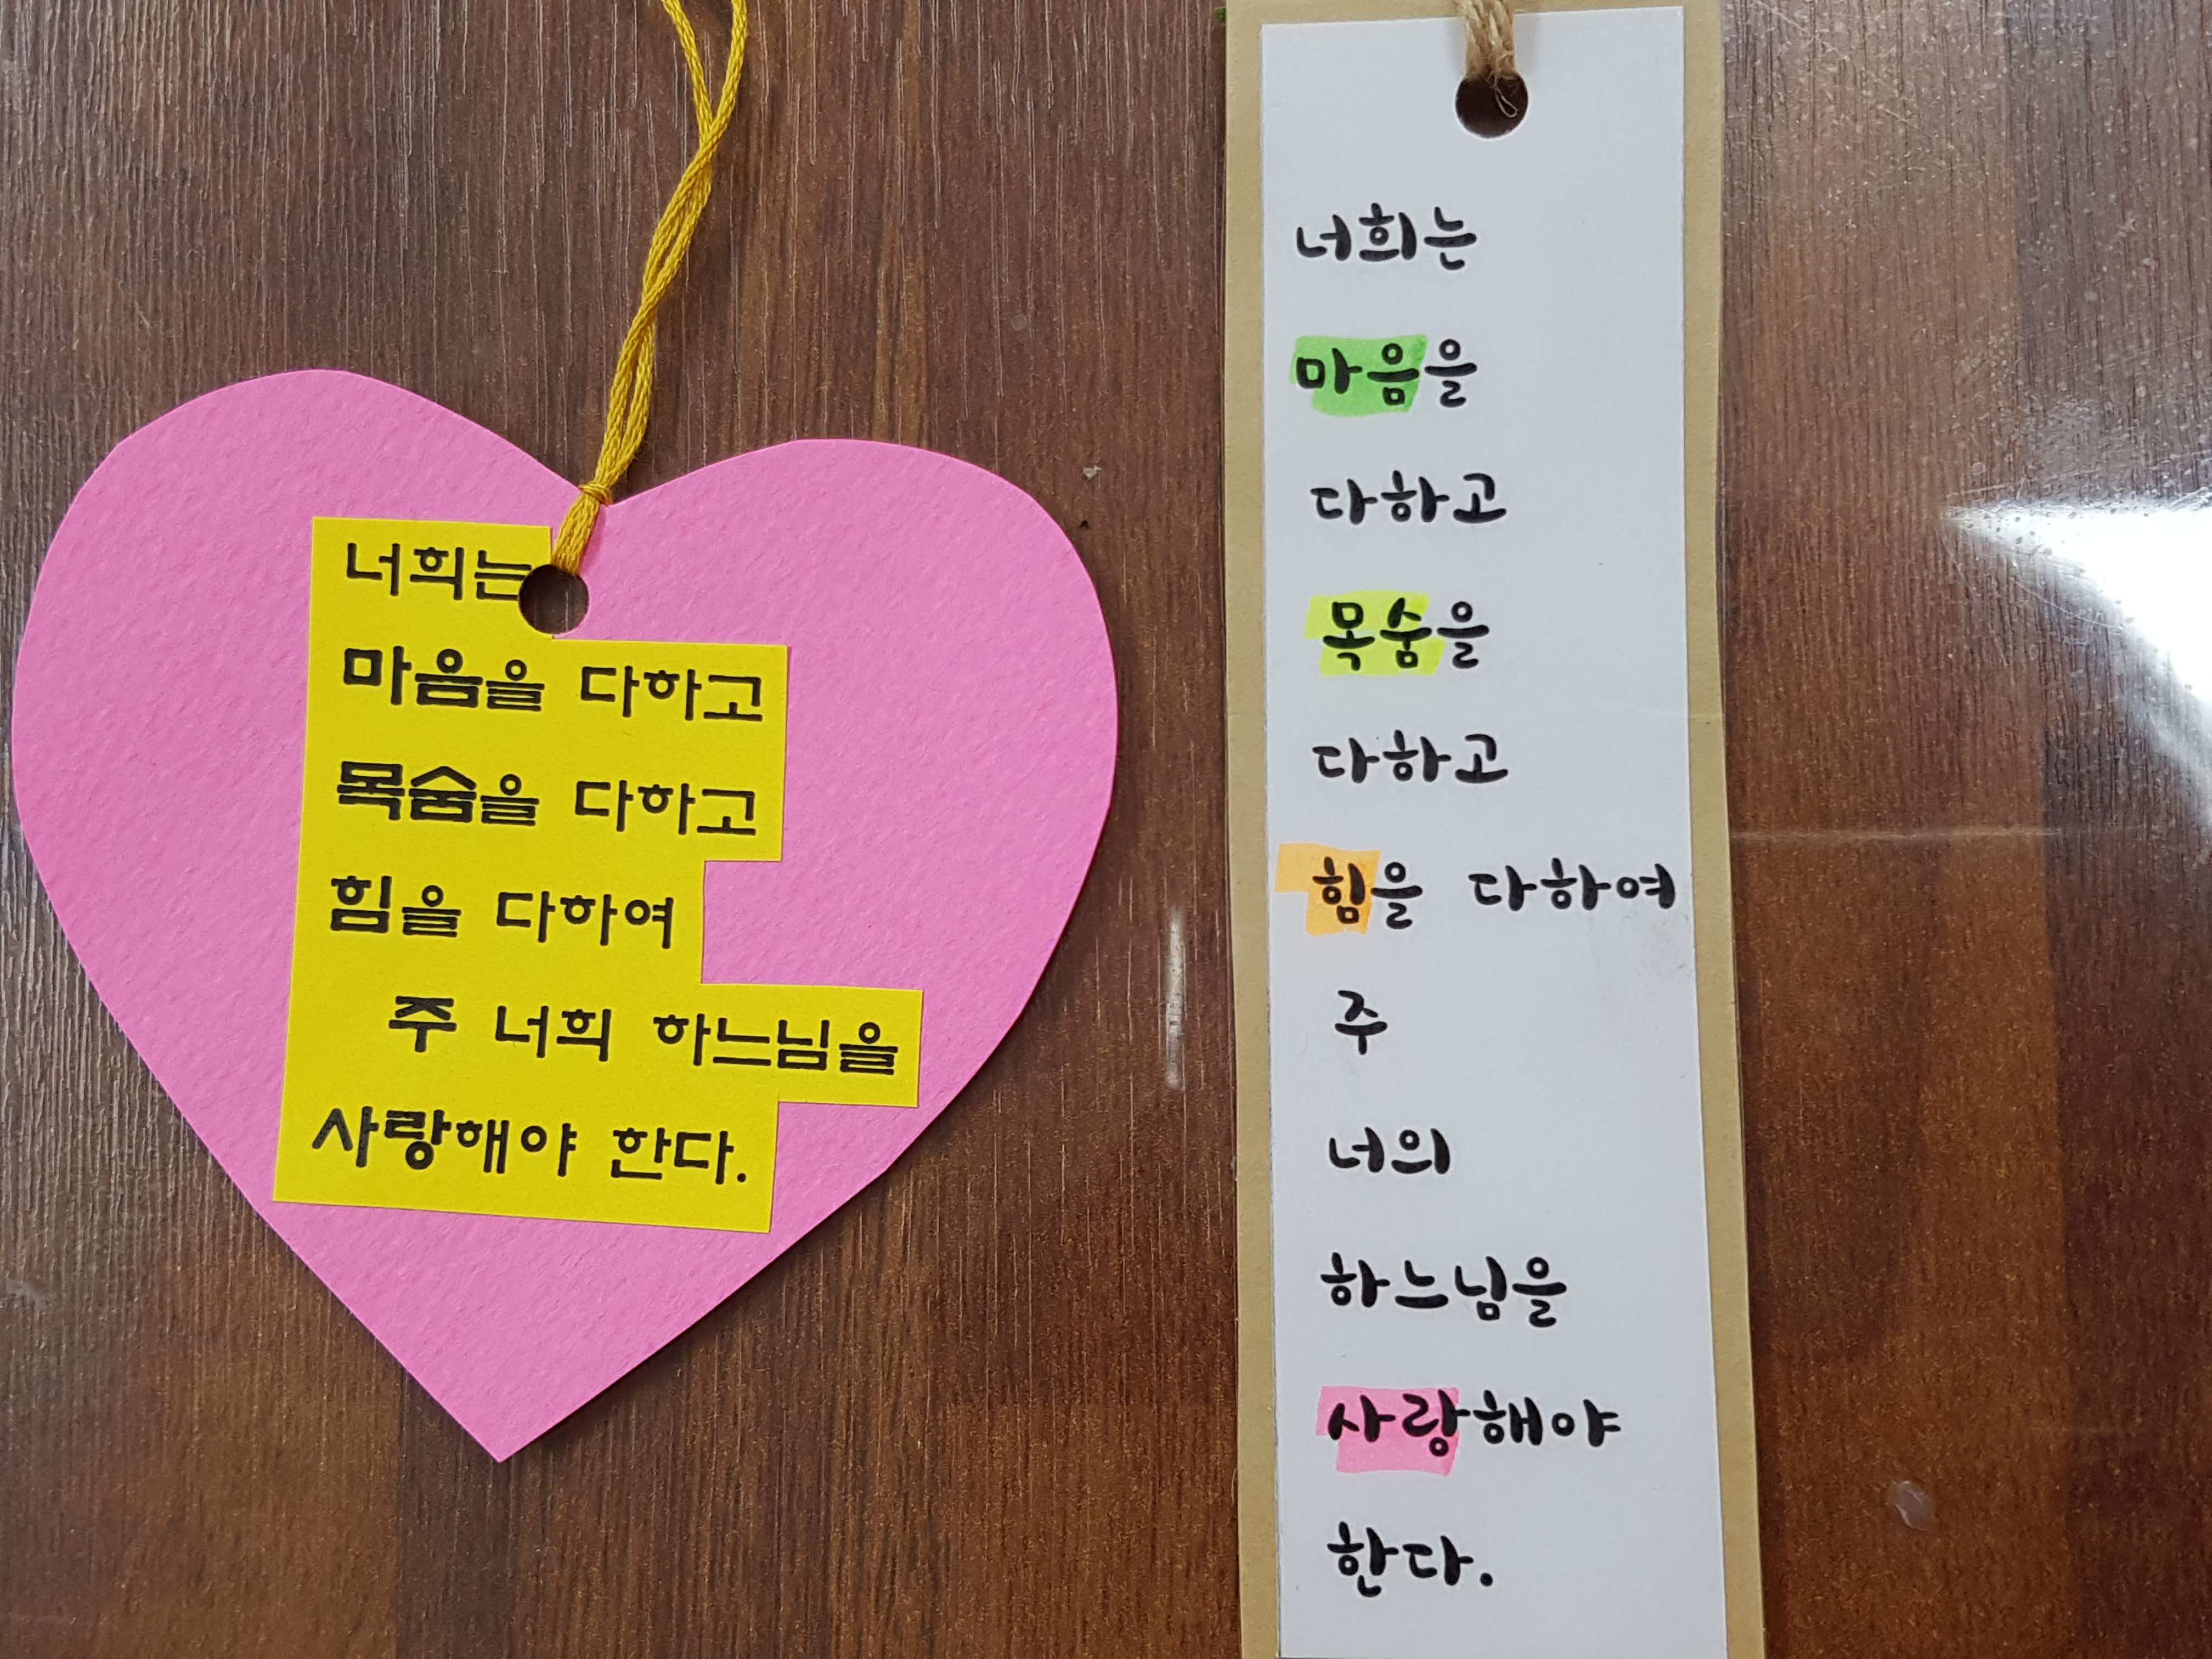 너희는
마음을 다하고
목숨을 다하고
힘을 다하여
주 너희 하느님을
사랑해야 한다.
너희는
마음을
다하고
목숨을
다하고
힘을 다하여
주
너의
하느님을
사랑해야
한다.